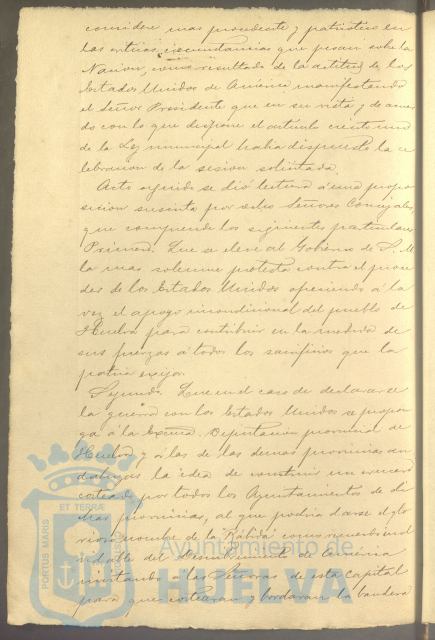 considere mas procedente y patriotico en
las criticas circunstancias que pesan sobre la
Nacion, como resultado de la actitud de los
Estados Unidos de America manifestando
el Señor Presidente que en su vista y de acuer
do con lo que dispone el articulo ciento uno
de la Ley municipal habia dispuesto la ce
lebracion de la sesion solicitada.
Acto seguido se dió lectura á una propo
sicion suscrita por Señores Concejales,
que comprende los siguientes particulares
Primero. Que se eleve al Gobierno de S. M.
la mas solemne protesta contra el proce
der de los Estados Unidos ofreciendo á la
vez el apoyo incondicional del pueblo de
Huelva para contribuir en la medida de
sus fuerzas á todos los sacrificios que la
patria exija.
Segundo. Que en el caso de declararse
la guerra con los Estados Unidos se propon
ga á la Excma. Diputacion provincial de
Huelva y á las de las demas provincias an
daluzas la idea de construir un crucero
costeado por todos los Ayuntamientos de di
chas provincias, al que podria darse el glo
rioso nombre de la Rabida como recuerdo inol
vidable del Descubrimiento de America
invitando á las Señoras de esta capital
para que costearan y bordaran la bandera
PORTUS MARIS ET TERRÆ
Ayuntamiento de
HUELVA